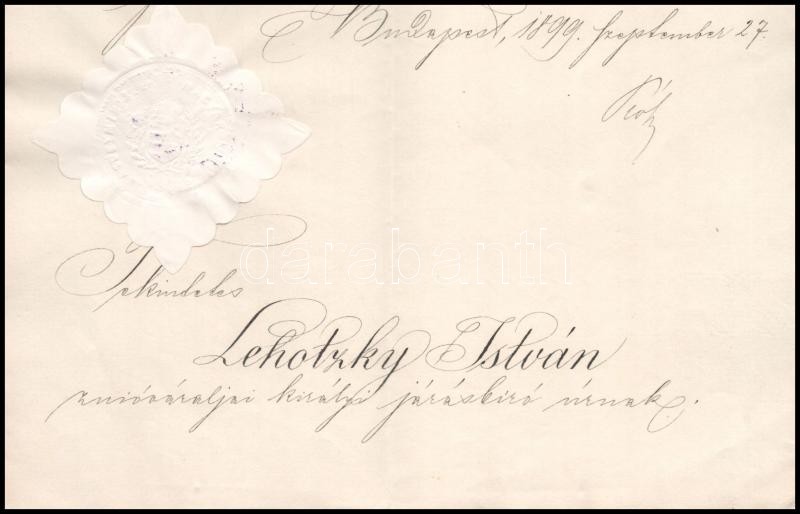 Budapest, 1899. szeptember 27.
Tekintetes
Lehotzky István
znióváraljai királyi járásbiró úrnak.
darabanth